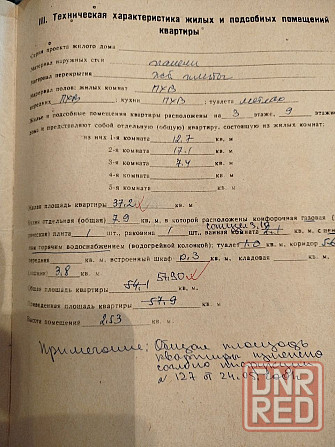 III. Техническая характеристика жилых и подсобных помещений
квартиры
Серия проекта жилого дома
Материал наружных стен панели
Материал перекрытия жб плиты
Материал полов: жилых комнат ПХВ
коридоров ПХВ; кухни ПХВ; туалета метлах
Жилые и подсобные помещения квартиры расположены на 3 этаже, 9 этажн.
дома и представляют собой отдельную (общую) квартиру, состоящую из жилых комнат.
1-я комната 12.7 кв. м
2-я комната 17.1 кв. м
3-я комната 7.4 кв. м
4-я комната кв. м
5-я комната кв. м
Жилая площадь квартиры 37.2 кв. м
отдельная (общая) 7.9 кв. м, в которой расположены конфорочная газовая (
плита 1 шт., раковина 1 шт., ванная комната 2.1 кв. м с
горячему водоснабжению (водогрейной колонкой); туалет 1.0 м, коридор 5.6
кв. м встроенный шкаф 0.3 кв. м, кладовая кв. м,
3.8 кв. м 57.90
Общая площадь квартиры 54.1 кв. м
площадь квартиры 57.9 кв. м
Высота помещений 2.53 кв. м
Примечание: Общая площадь
квартиры изменена
N 127 от
DNR
RED